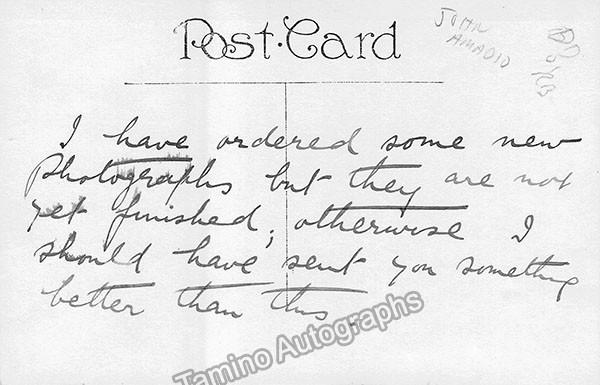 Post-Card
JOHN
AMADIO
I have ordered some new
photographs but they are not
yet finished, otherwise I
should have sent you something
better than this.
Tamino Autographs